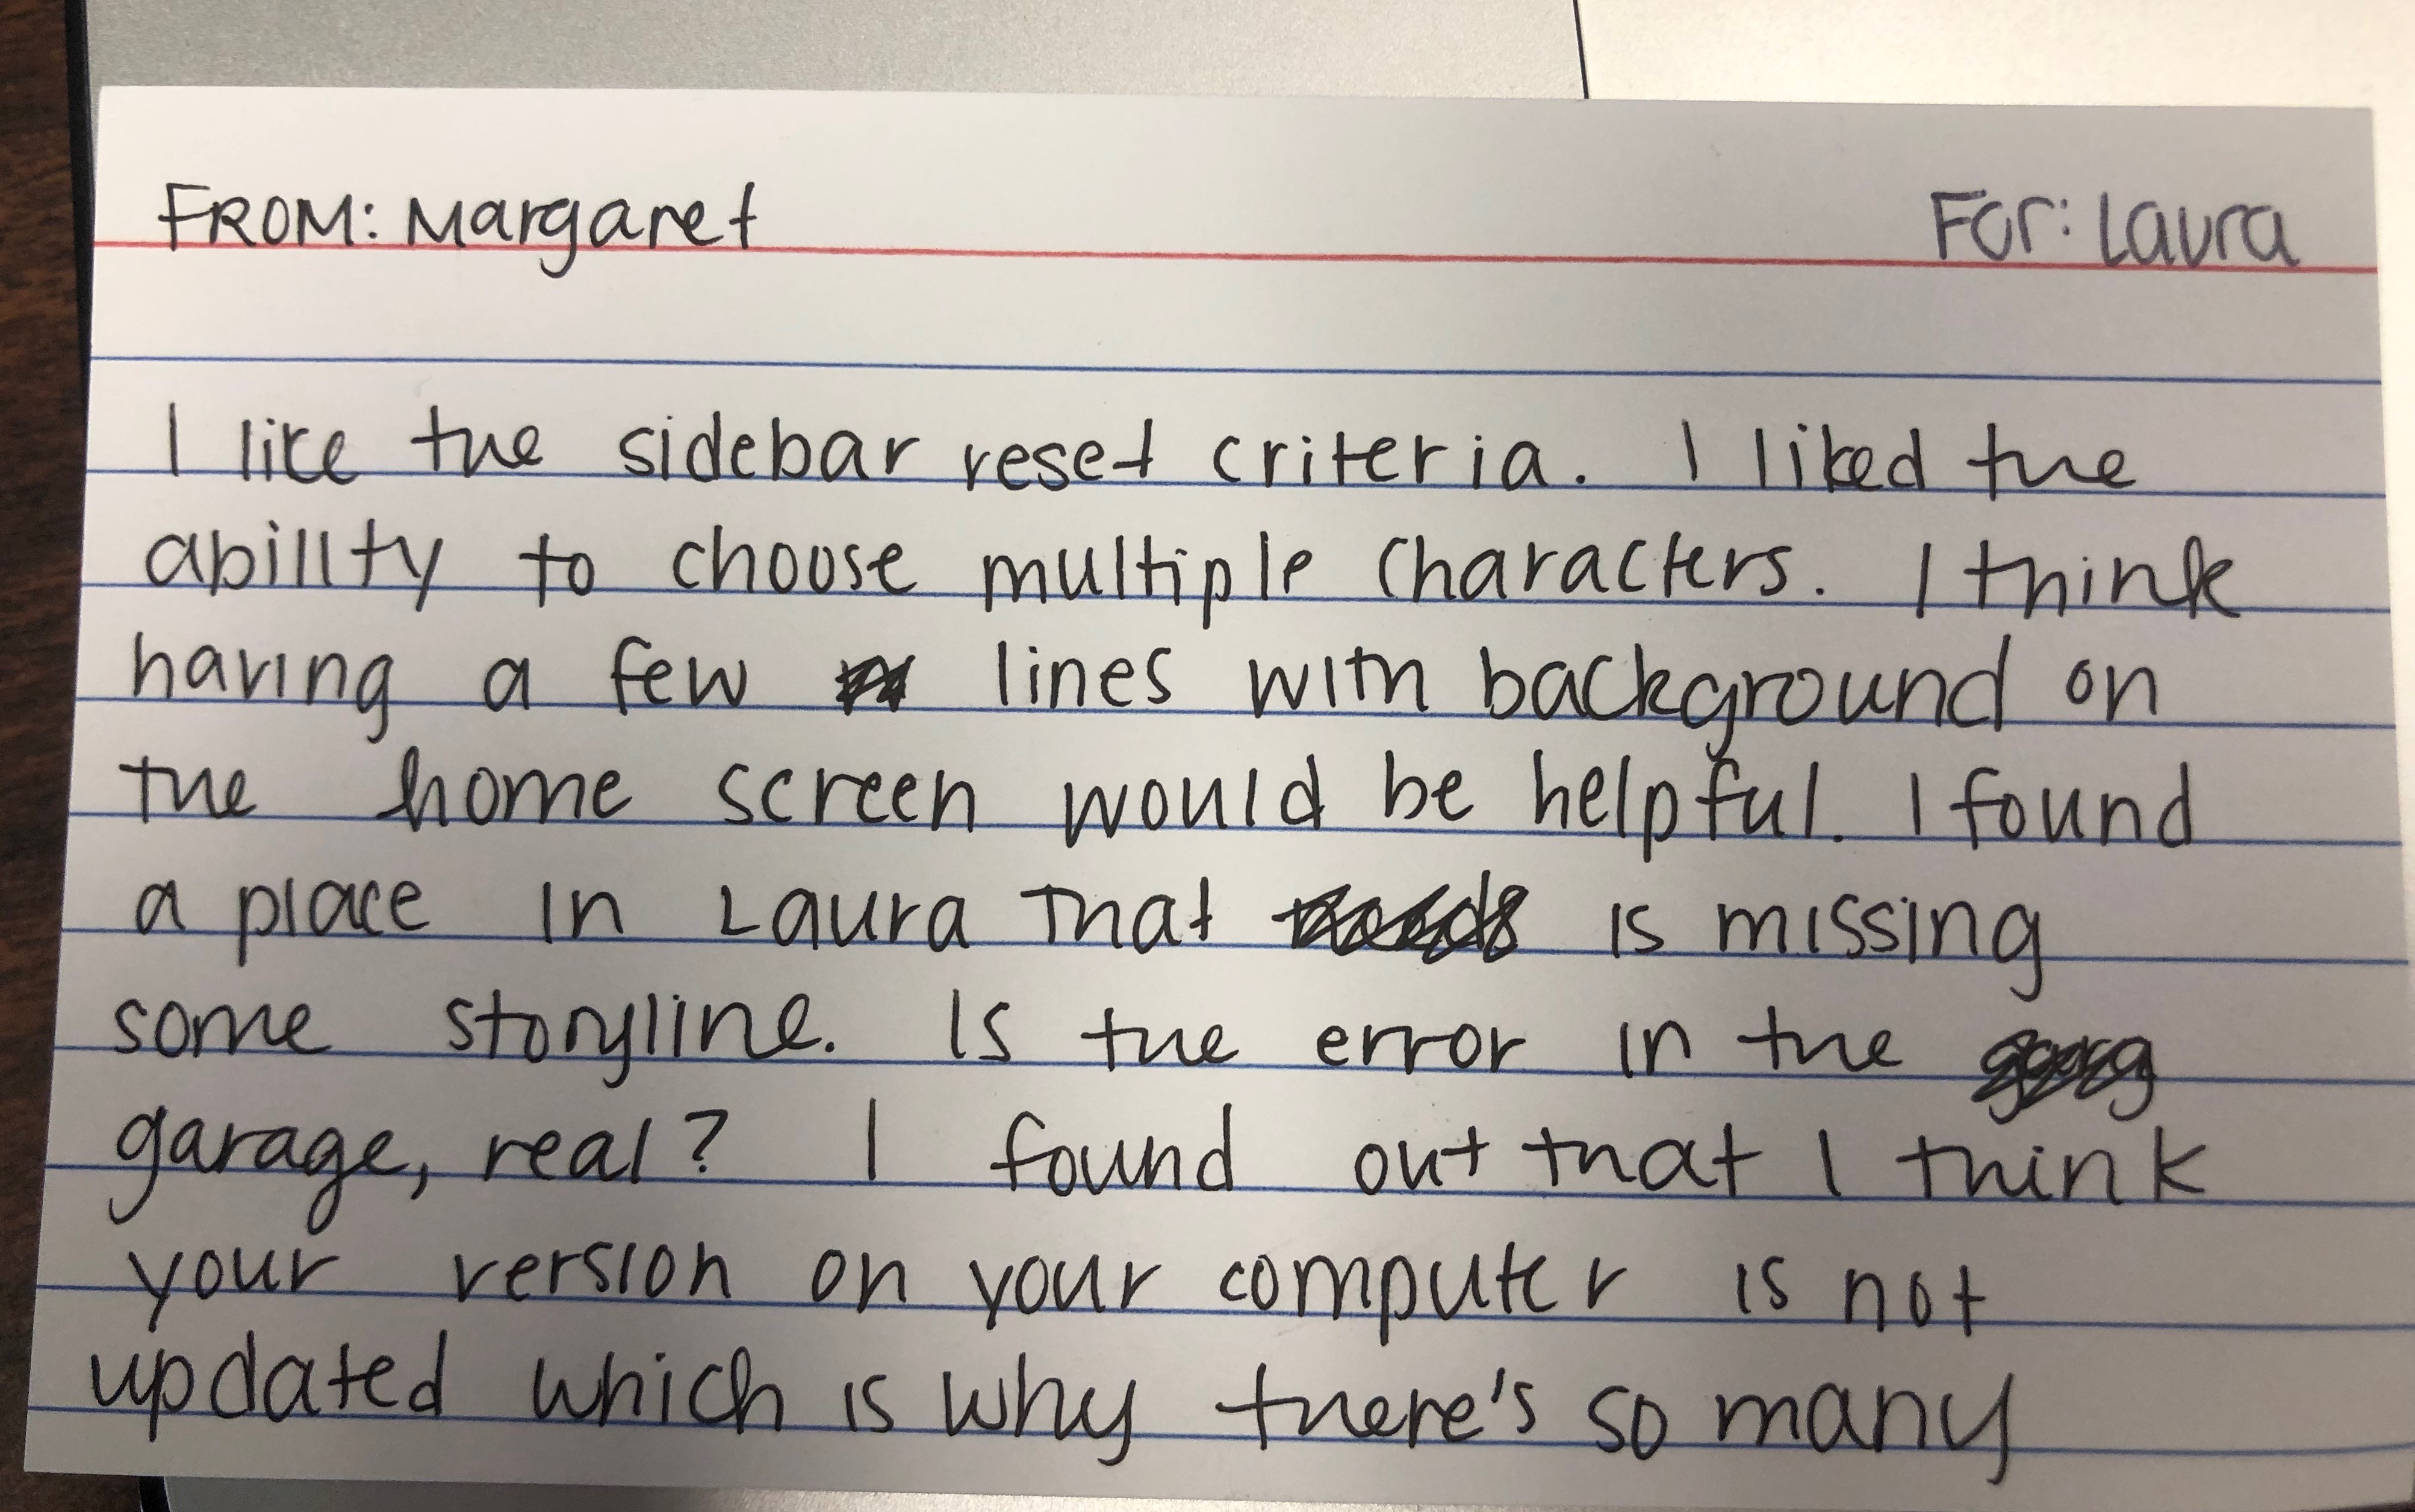 FROM: Margaret For: Laura
I like the sidebar reset criteria. I liked the
ability to choose multiple characters. I think
having a few lines with background on
the home screen would be helpful. I found
a place in Laura that is missing
some storyline. Is the error in the
garage, real? I found out that I think
your version on your computer is not
updated which is why there's so many